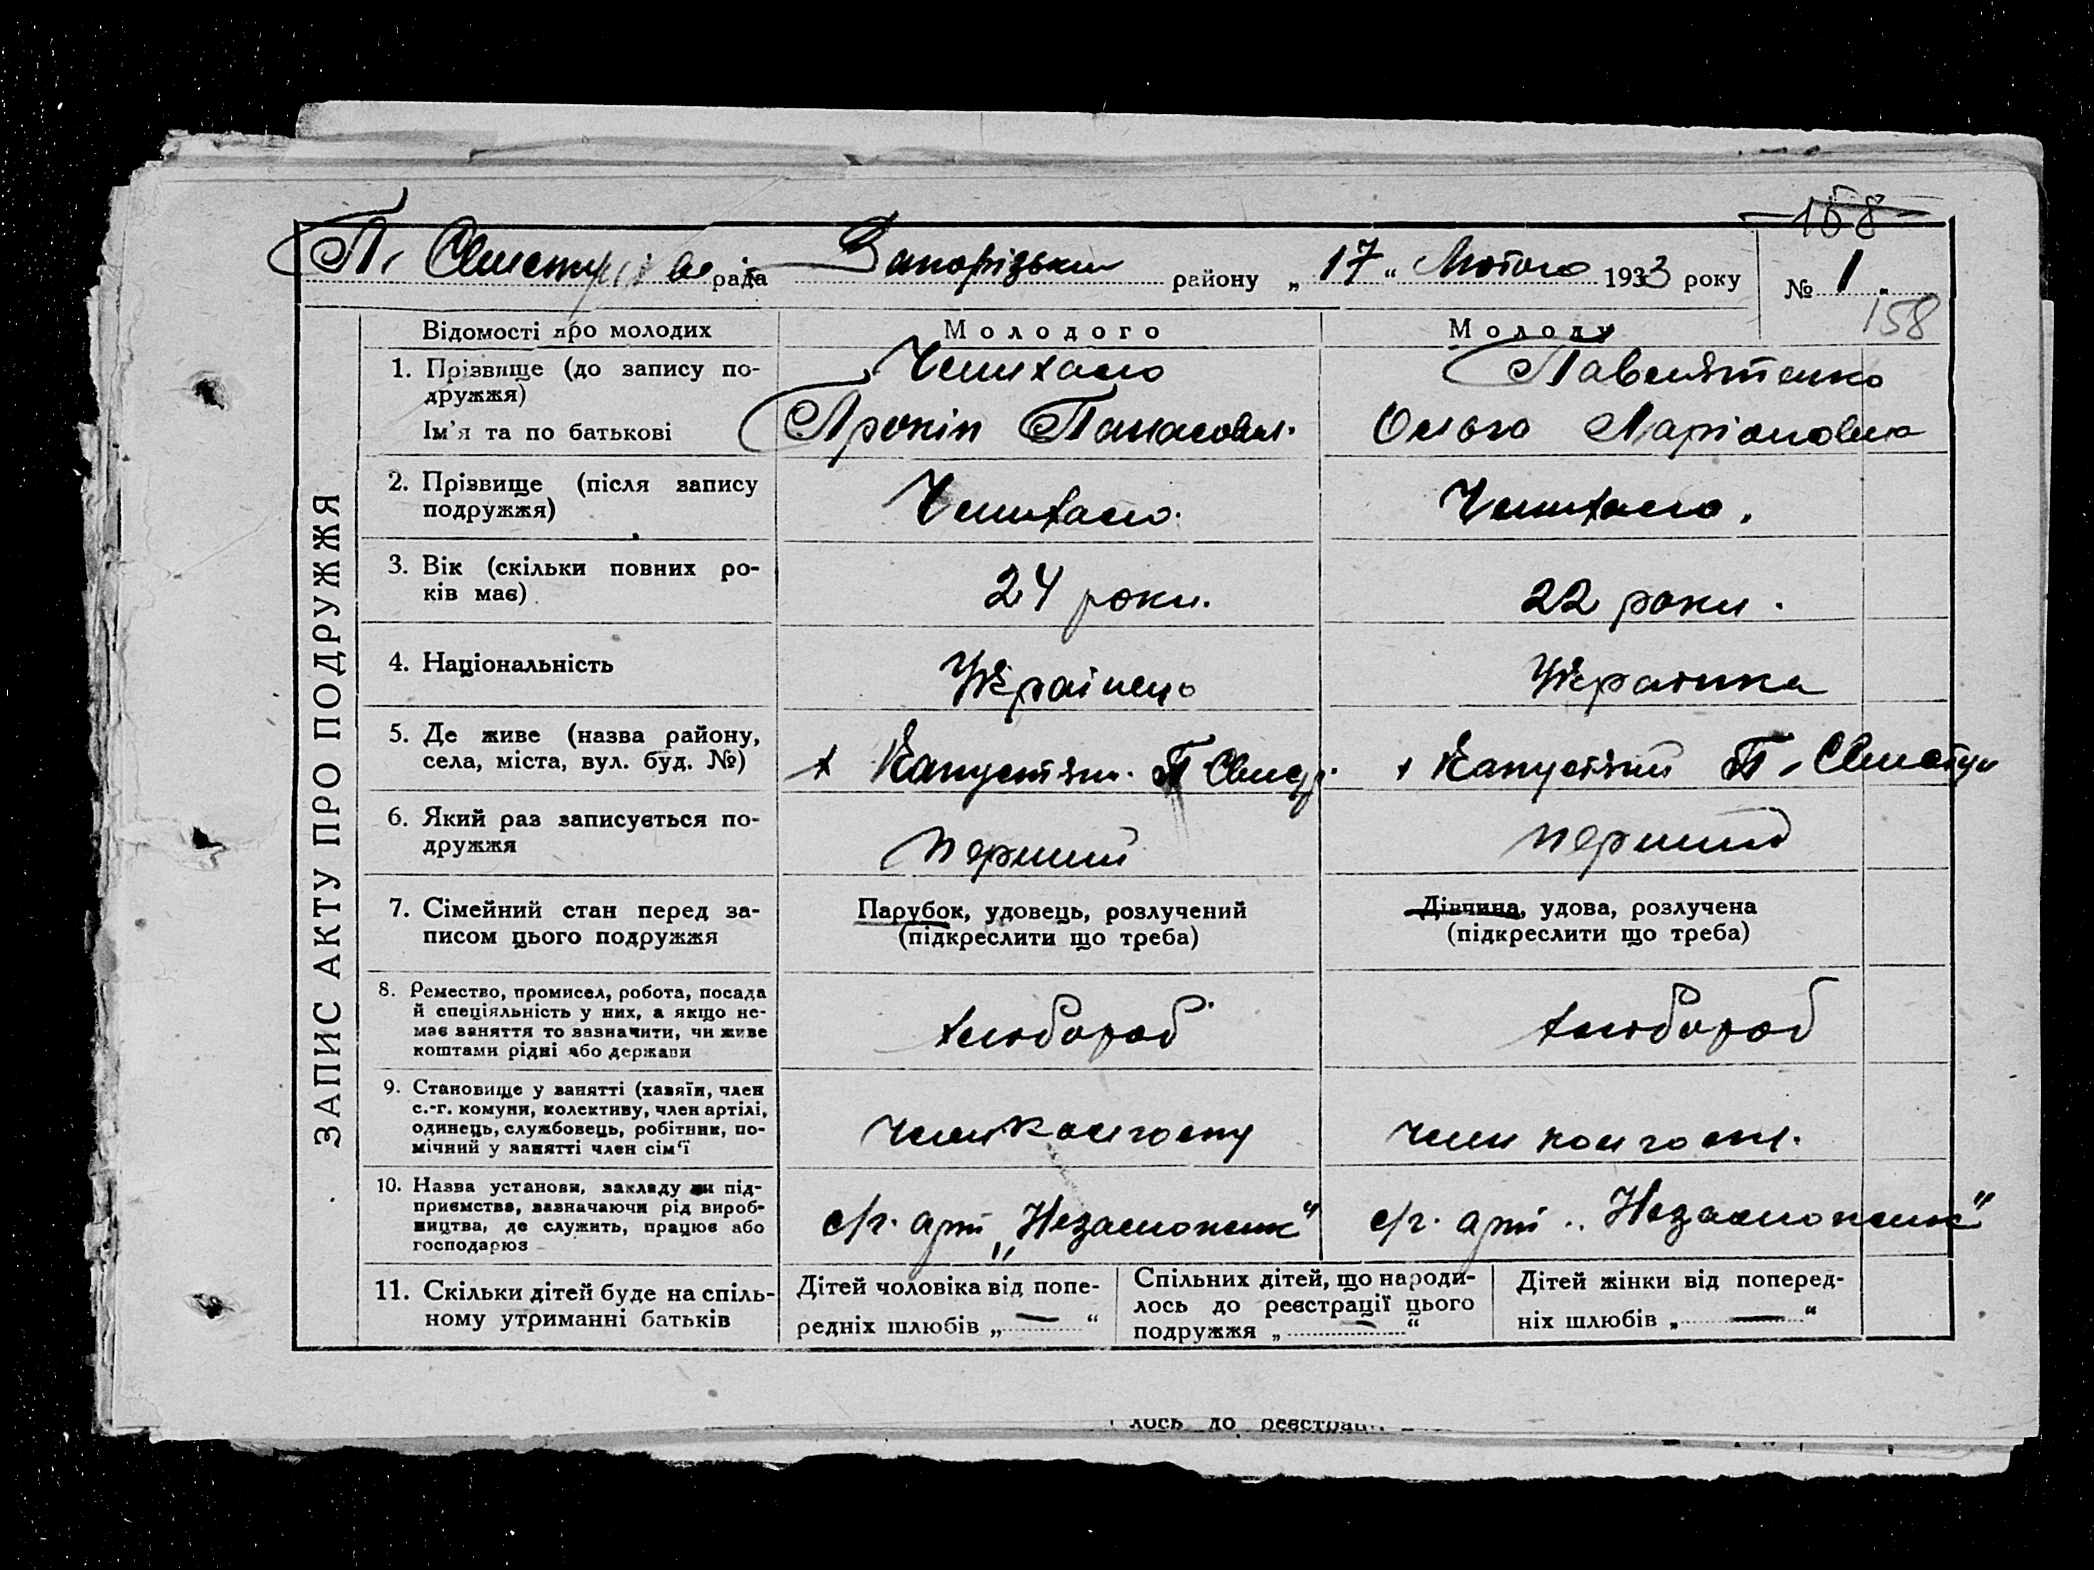 158
П. Свистунівс рада Запорізьким району „17“ Лютого 1933 року № 1
158
ЗАПИС АКТУ ПРО ПОДРУЖЖЯ
Відомості про молодих Молодого Молоду
1. Прізвище (до запису по-
дружжя)
Ім'я та по батькові
Прокіп Панасович.
Ольга Ларіоновна
2. Прізвище (після запису
подружжя)
3. Вік (скільки повних ро-
ків має)
24 роки.
22 роки.
4. Національність
Українець
Українка
5. Де живе (назва району,
села, міста, вул. буд. №)
х Капустян. П Свист.
х Капустяний П. Свистун
6. Який раз записується по-
дружжя
перший
перший
7. Сімейний стан перед за-
писом цього подружжя
Парубок, удовець, розлучений
(підкреслити що треба)
Дівчина, удова, розлучена
(підкреслити що треба)
8. Ремество, промисел, робота, посада
й спеціяльність у них, а якщо не-
має заняття то зазначити, чи живе
коштами рідні або держави
хлібороб
хлібороб
9. Становище у занятті (хазяїн, член
с.-г. комуни, колективу, член артілі,
одинець, службовець, робітник, по-
мічний у занятті член сім'ї
член колгоспу
член колгосп.
10. Назва установи, закладу чи під-
приємства, зазначаючи рід вироб-
ництва, де служить, працює або
господарює
с/г. арт „Незаможник“
с/г. арт „Незаможник“
11. Скільки дітей буде на спіль-
ному утриманні батьків
Дітей чоловіка від попе-
редніх шлюбів „—“
Спільних дітей, що народи-
лось до реєстрації цього
подружжя „—“
Дітей жінки від поперед-
ніх шлюбів „—“
лось до реєстрац